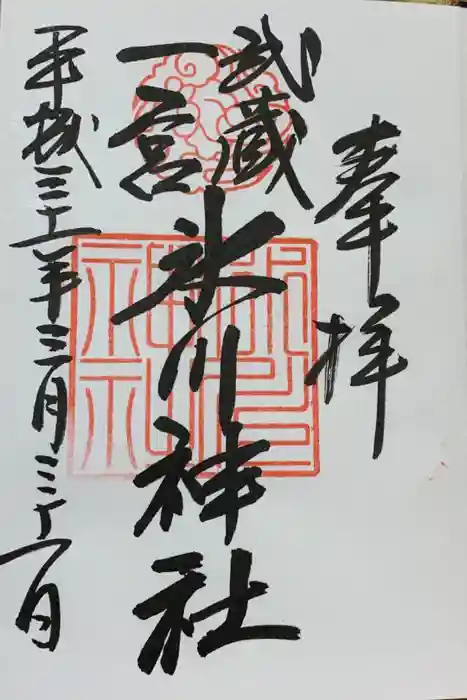 奉拝
武蔵
一宮
氷川神社
平成三十一年三月三十一日